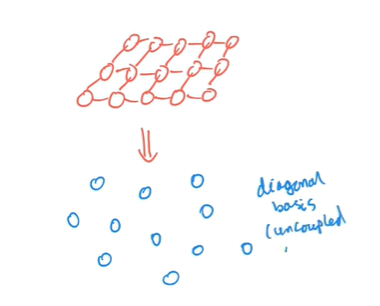 diagonal
basis
(uncoupled